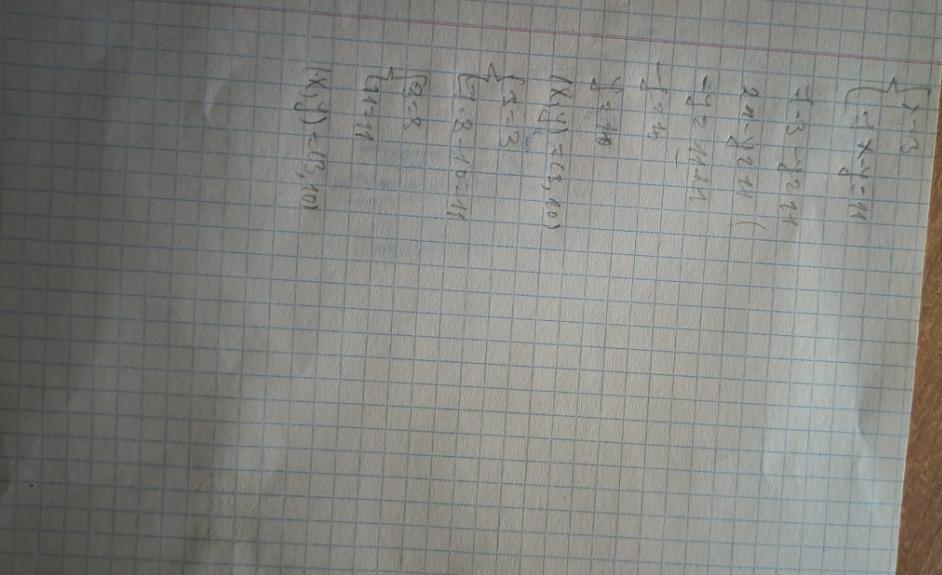 { x=3
{ 7x-y=11
7·3-y=11
21-y=11
-y=11-21
-y=-10
y=10
(x,y)=(3,10)
{ 3=3
{ 7·3-10=11
{ 3=3
{ 11=11
(x,y)=(3,10)